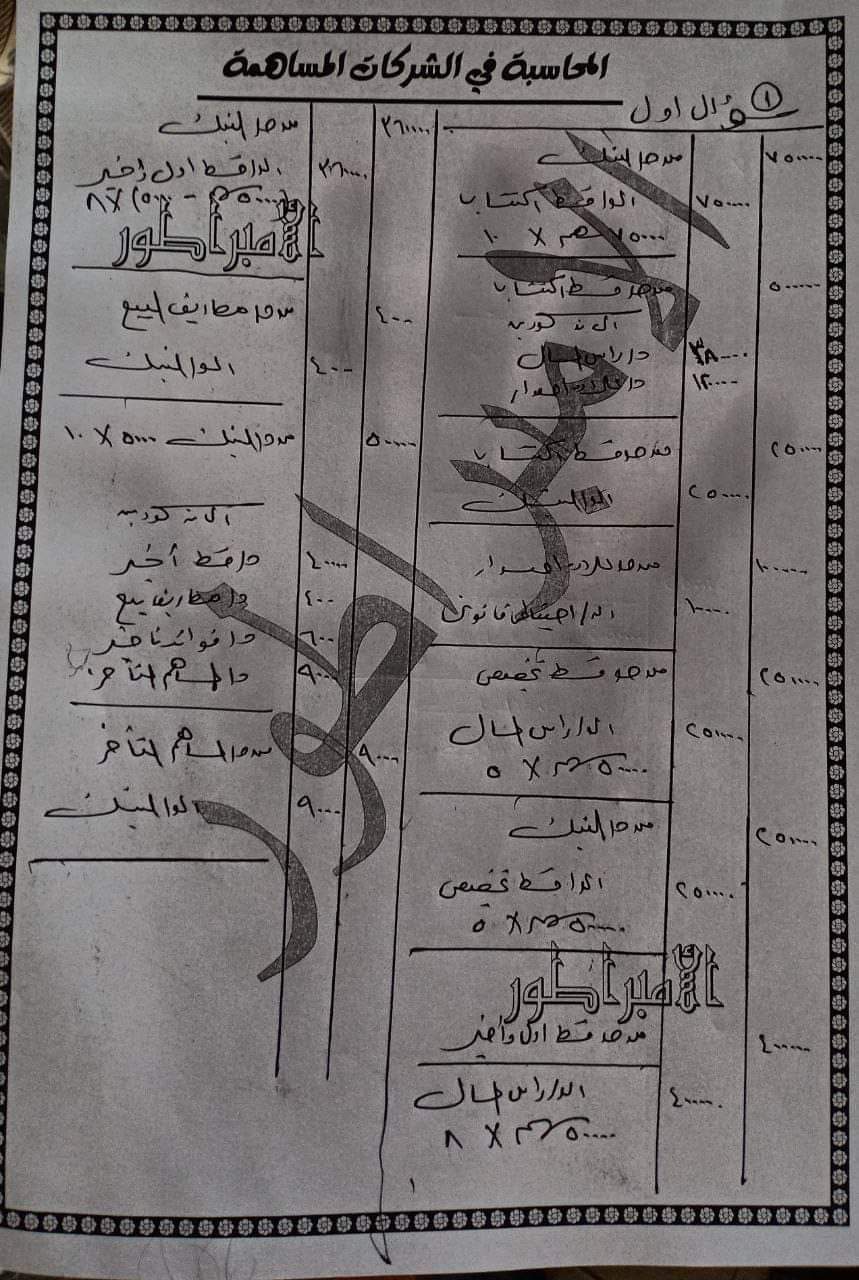 المحاسبة في الشركات المساهمة
١ سؤال اول
٧٥٠٠٠٠ من حـ/ البنك
٧٥٠٠٠٠ الى حـ/ قسط اكتتاب
٧٥٠٠٠ سهم X ١٠
٥٠٠٠٠٠ من حـ/ قسط اكتتاب
الى مذكورين
٣٨٠٠٠٠ حـ/ راس المال
١٢٠٠٠٠ حـ/ علاوة اصدار
٢٥٠٠٠٠ من حـ/ قسط اكتتاب
٢٥٠٠٠٠ الى حـ/ البنك
من حـ/ علاوة اصدار
الى حـ/ احتياطى قانونى
٢٥٠٠٠٠ من حـ/ قسط تخصيص
٢٥٠٠٠٠ الى حـ/ راس المال
٥٠٠٠٠ سهم X ٥
٢٥٠٠٠٠ من حـ/ البنك
٢٥٠٠٠٠ الى حـ/ قسط تخصيص
٥٠٠٠٠ سهم X ٥
الأمبراطور
٤٠٠٠٠٠ من حـ/ قسط اول واخير
٤٠٠٠٠٠ الى حـ/ راس المال
٥٠٠٠٠ سهم X ٨
٣٦٠٠٠٠ من حـ/ البنك
٣٦٠٠٠٠ الى حـ/ قسط اول واخير
الأمبراطور
٤٠٠ من حـ/ مصاريف البيع
٤٠٠ الى حـ/ البنك
٥٠٠٠٠ من حـ/ البنك ٥٠٠٠ X ١٠
الى مذكورين
٤٠٠٠٠ حـ/ قسط أخير
٤٠٠ حـ/ مصاريف بيع
٦٠٠ حـ/ فوائد تأخير
٩٠٠٠ حـ/ المساهم المتأخر
٩٠٠٠ من حـ/ المساهم المتأخر
٩٠٠٠ الى حـ/ البنك
١